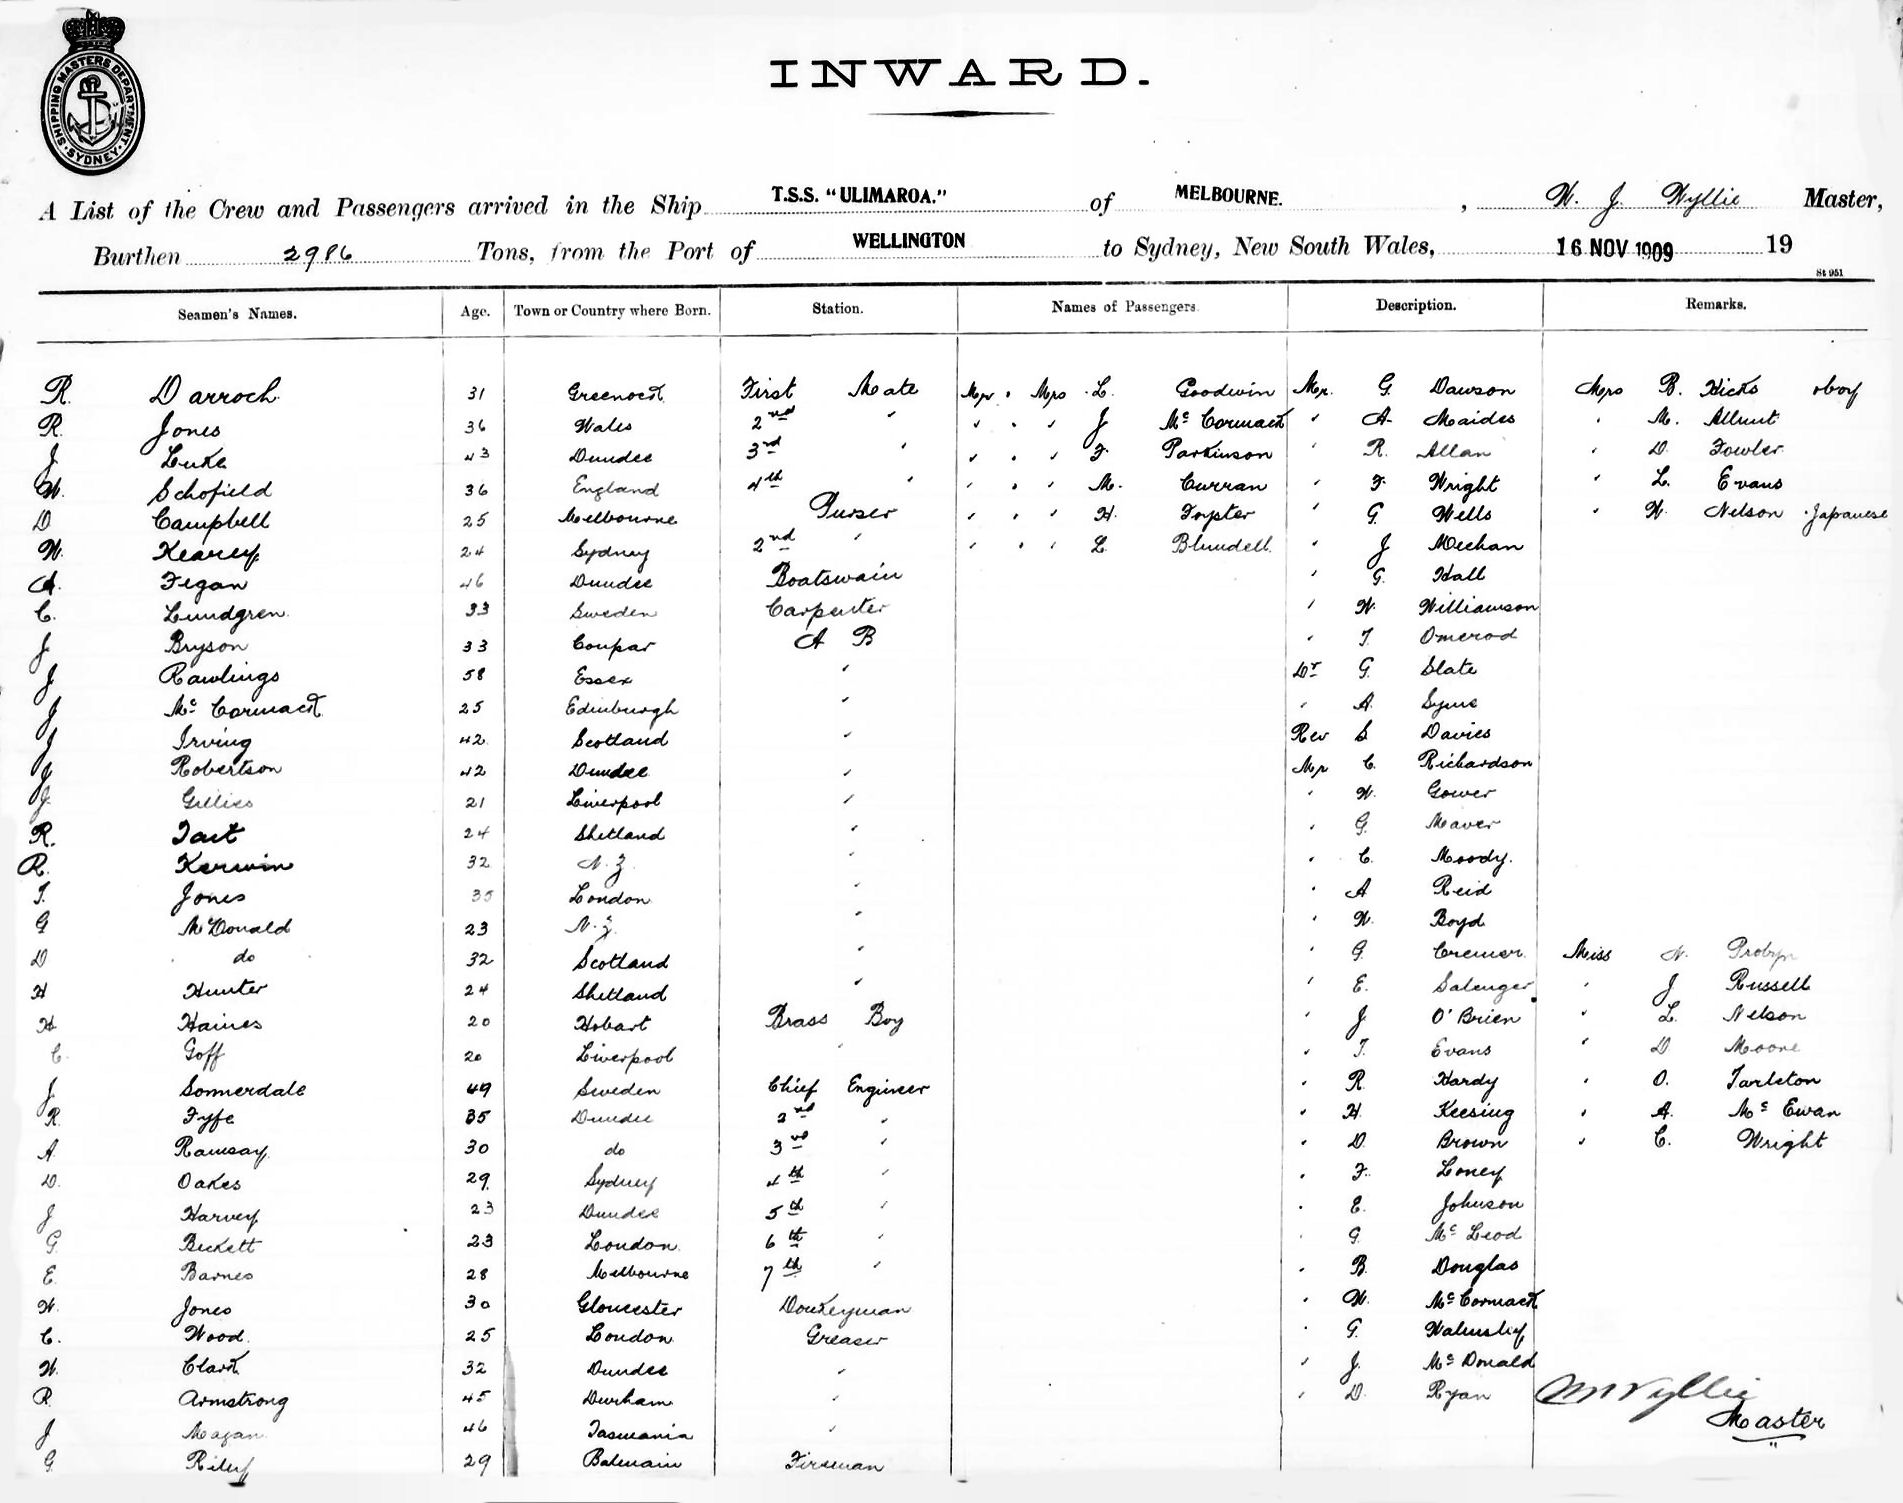 SHIPPING MASTERS DEPARTMENT
SYDNEY
INWARD.
A List of the Crew and Passengers arrived in the Ship T.S.S. "ULIMAROA." of MELBOURNE. , W. J. Wyllie Master,
Burthen 2986 Tons, from the Port of WELLINGTON to Sydney, New South Wales, 16 NOV 1909 19
St 951
Seamen's Names. Age. Town or Country where Born. Station. Names of Passengers. Description. Remarks.
R. Darroch 31 Greenock First Mate Mr " Mrs L. Goodwin Mr. G. Dawson Mrs B. Hicks & boy
R. Jones 36 Wales 2nd " " " " J Mc Cormack " A. Maides " M. Allunt
J Luke 43 Dundee 3rd " " " " F. Parkinson " R. Allan " D. Fowler
W. Schofield 36 England 4th " " " " M. Curran " F. Wright " L. Evans
D Campbell 25 Melbourne Purser " " " H. Foyster " G. Wells " W. Nelson Japanese
W. Kearey 24 Sydney 2nd " " " " L. Blundell " J Meehan
A. Fegan 46 Dundee Boatswain " G. Hall
C. Lundgren 33 Sweden Carpenter " W. Williamson
J Bryson 33 Coupar A B " T. Omerod
J Rawlings 58 Essex " Dr G. Slate
J Mc Cormack 25 Edinburgh " " A. Syme
J Irving 42 Scotland " Rev S Davies
J Robertson 42 Dundee " Mr C. Richardson
J. Gillies 21 Liverpool " " W. Gower
R. Tait 24 Shetland " " G. Maver
R. Kerwin 32 N. Z. " " C. Moody.
T. Jones 35 London " " A Reid
G McDonald 23 N. Z. " " W. Boyd
D do 32 Scotland " " G. Cremer Miss N. Probyn
H Hunter 24 Shetland " " E. Salenger " J Russell
H Haines 20 Hobart Brass Boy " J. O'Brien " L. Nelson
C. Goff 20 Liverpool " " T. Evans " D Moore
J Sonnerdale 49 Sweden Chief Engineer " R. Hardy " O. Tarleton
R. Fyfe 35 Dundee 2nd " " H. Keesing " A. Mc Ewan
A. Ramsay 30 do 3rd " " D. Brown " C. Wright
D. Oakes 29 Sydney 4th " " F. Loney
J Harvey 23 Dundee 5th " " E. Johnson
G. Beckett 23 London 6th " " G. Mc Leod
E. Barnes 28 Melbourne 7th " " B. Douglas
W. Jones 30 Gloucester Donkeyman " W. Mc Cormack
C. Wood 25 London Greaser " G. Walmsley
W. Clark 32 Dundee " " J. Mc Donald
R. Armstrong 45 Durham " " D. Ryan W Wyllie
J Magan 46 Tasmania " Master
G. Riley 29 Balmain Fireman